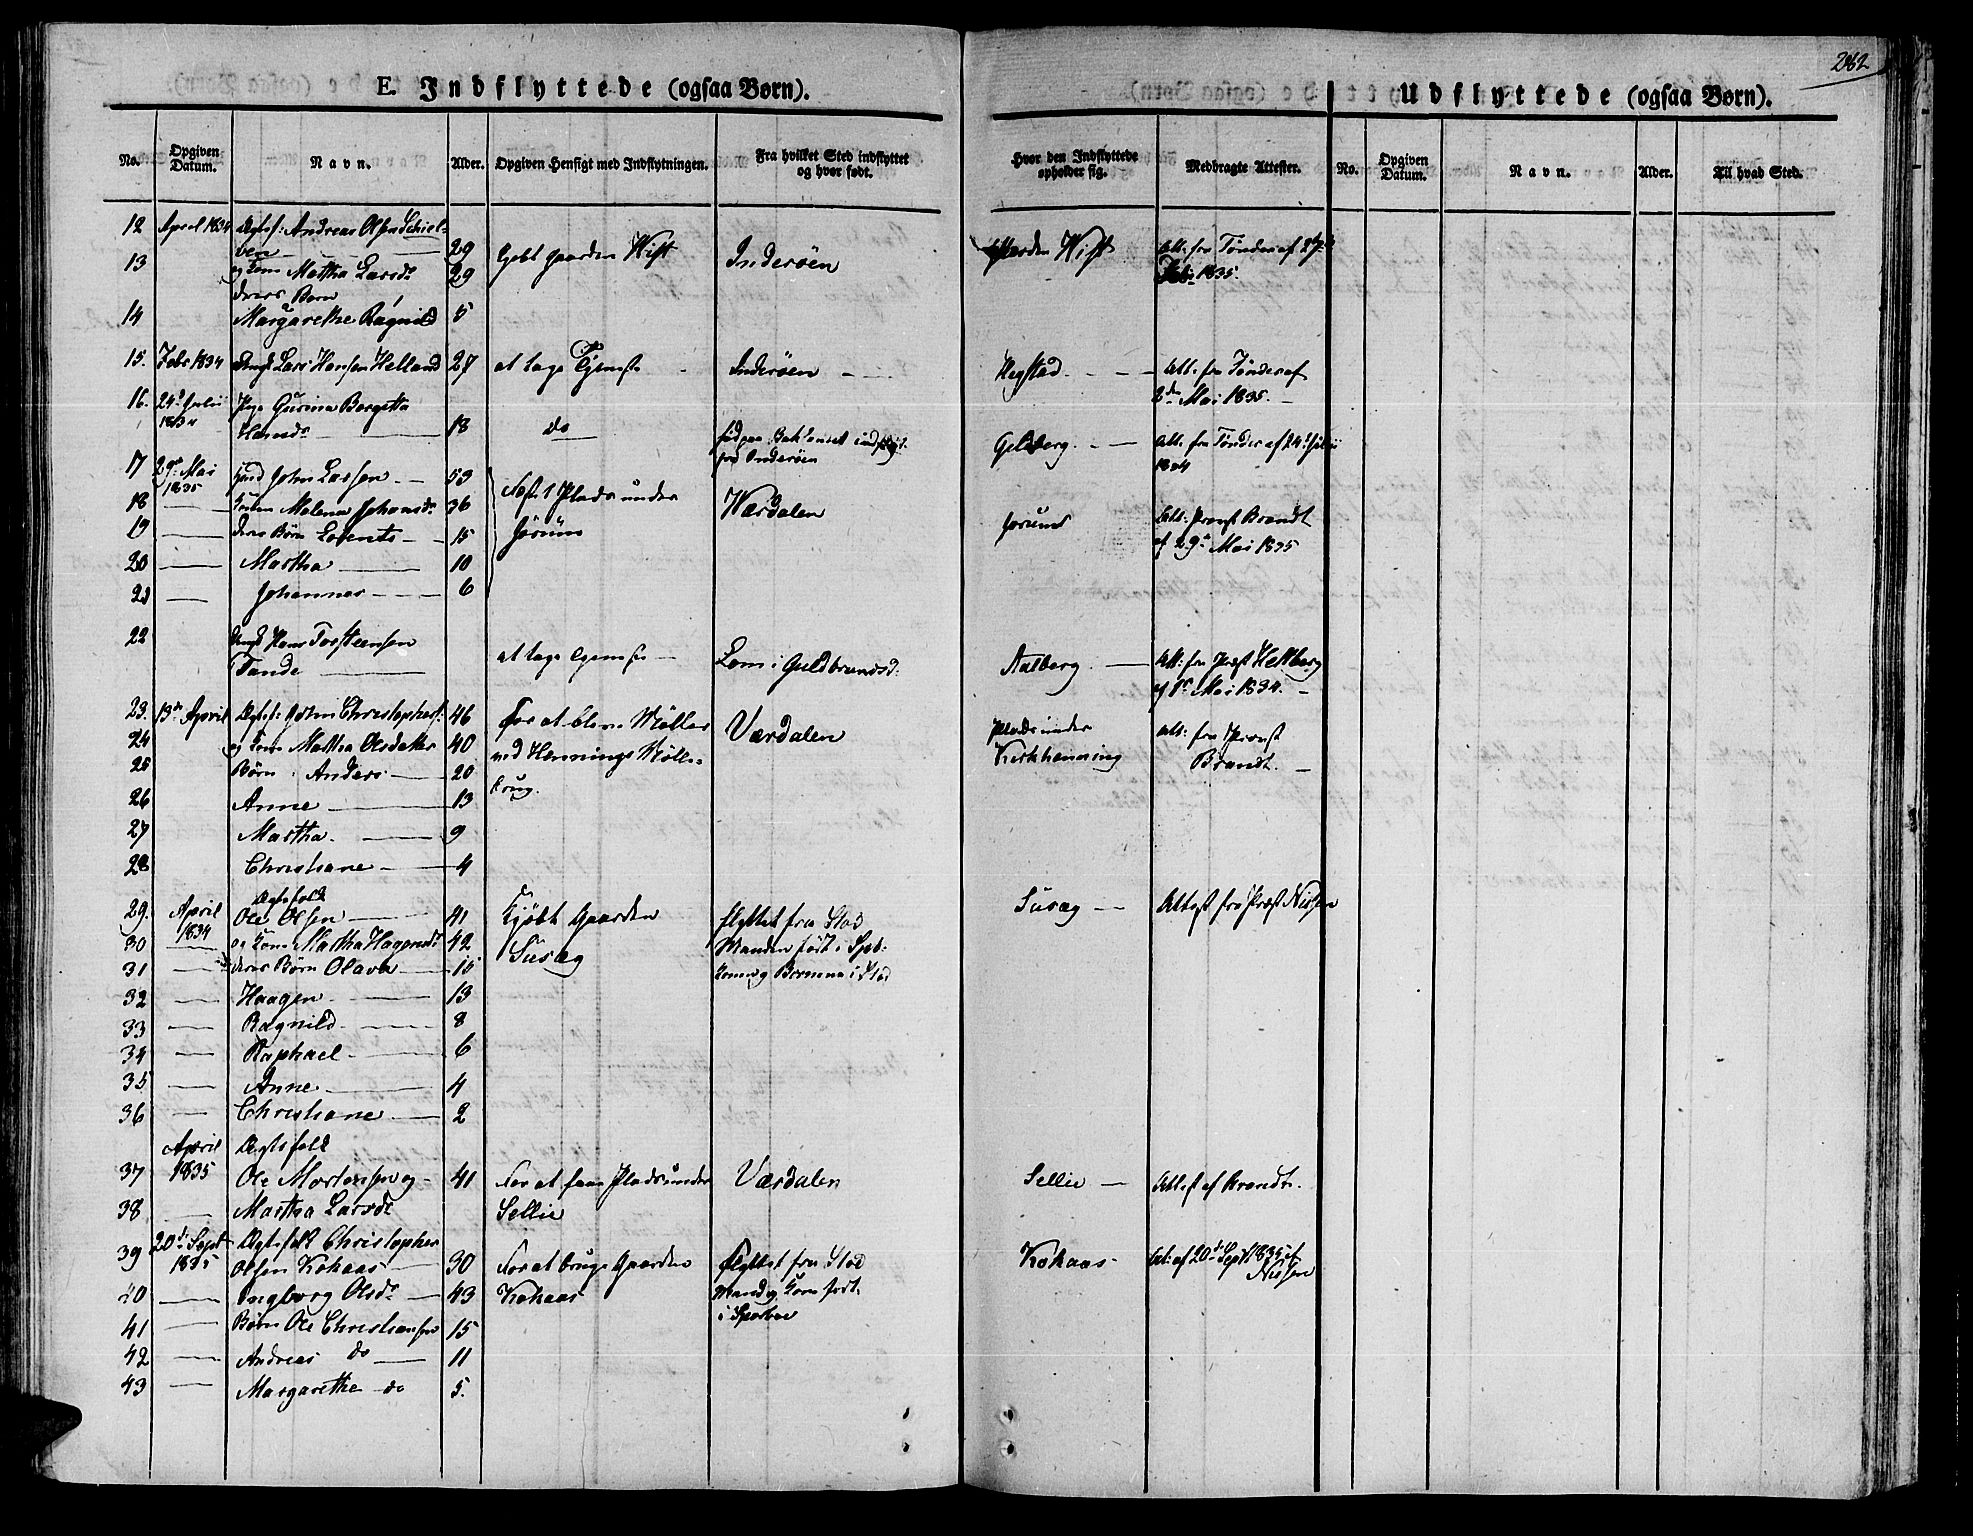 262
E. Indflyttede (ogsaa Børn).
Udflyttede (ogsaa Børn).
No. Opgiven Datum. Navn. Alder. Opgiven Hensigt med Indflytningen. Fra hvilket Sted indflyttet og hvor født. Hvor den Indflyttede opholder sig. Medbragte Attester. No. Opgiven Datum. Navn. Alder. Til hvad Sted.
12 April 1834 Ægtef: Andreas Olsen Schiel-
ven 29 Kjøbt Gaarden Wist Inderøen Gaarden Wist Att: fra Tønder af
13 og Kone Martha Larsdr 29 1835.
deres Barn
14 Margarethe Ragnild 5
15. Febr 1834 Ungk Lars Hansen Helland 27 at tage Tjeneste Inderøen Hegstad. Att: fra Tønder af
2den Mai 1835.
16. 24de Julii Pige Gurina Bergitta
1834 Hansdr 18 do født paa indflyt. Gilberg. Att. fra Tønder af 24de Julii
fra Inderøen 1834
17 29de Mai John Larsen 53 Plads under
1835
18 Konen Malena Johansdr 36 Jørum Wærdalen Jørum Att: Provst Brandt
19 deres Børn Lorents 15 af 29de Mai 1835
20 Martha 10
21 Johannes 6
22 Ungk Hans Torsteensen
Tande at tage Tjeneste Lom i Guldbrandsd: Aalberg. Att: fra Præst Heltberg
af 1ste Mai 1834.
23. 13de April Ægtef: John Christophers: 46 For at blive Møller Værdalen Plads under Att: fra Provst
24 og Kone Martha Olsdatter 40 ved Hennings Mølle- Kirkhenning Brandt.
25 Børn Anders 20 brug.
26 Anne 13
27 Martha. 9
28 Christiane 4
Ægtefolk
29. April Ole Olsen 41 Kjøbt Gaarden flyttet fra Stod Susæg Attest fra Præst Nissen
1834
30 og Kone Martha Haagensdr 42 Susæg Manden født i Sparb:
31 deres Børn Olava 15 Kone og Børnene i Stod
32 Haagen 13
33 Ragnild 8
34 Raphael 6
35 Anne 4
36 Christiane 2
April Ægtefolk
37 1835 Ole Mortensen og 41 for at faae Plads under Værdalen Sellie Attest af Brandt.
38 Martha Larsdr Sellie
20de Sept Ægtefolk Christopher
39 1835 Olsen Kohaas 30 for at bruge Gaarden flyttet fra Stod Kohaas Att: af 20de Sept 1835 af
Nissen
40 Ingborg Olsdr 43 Kohaas Mand og Kone født
41 Børn Ole Christiansen 15 i Sparboe
42 Andreas do 11
43 Margarethe do 5.